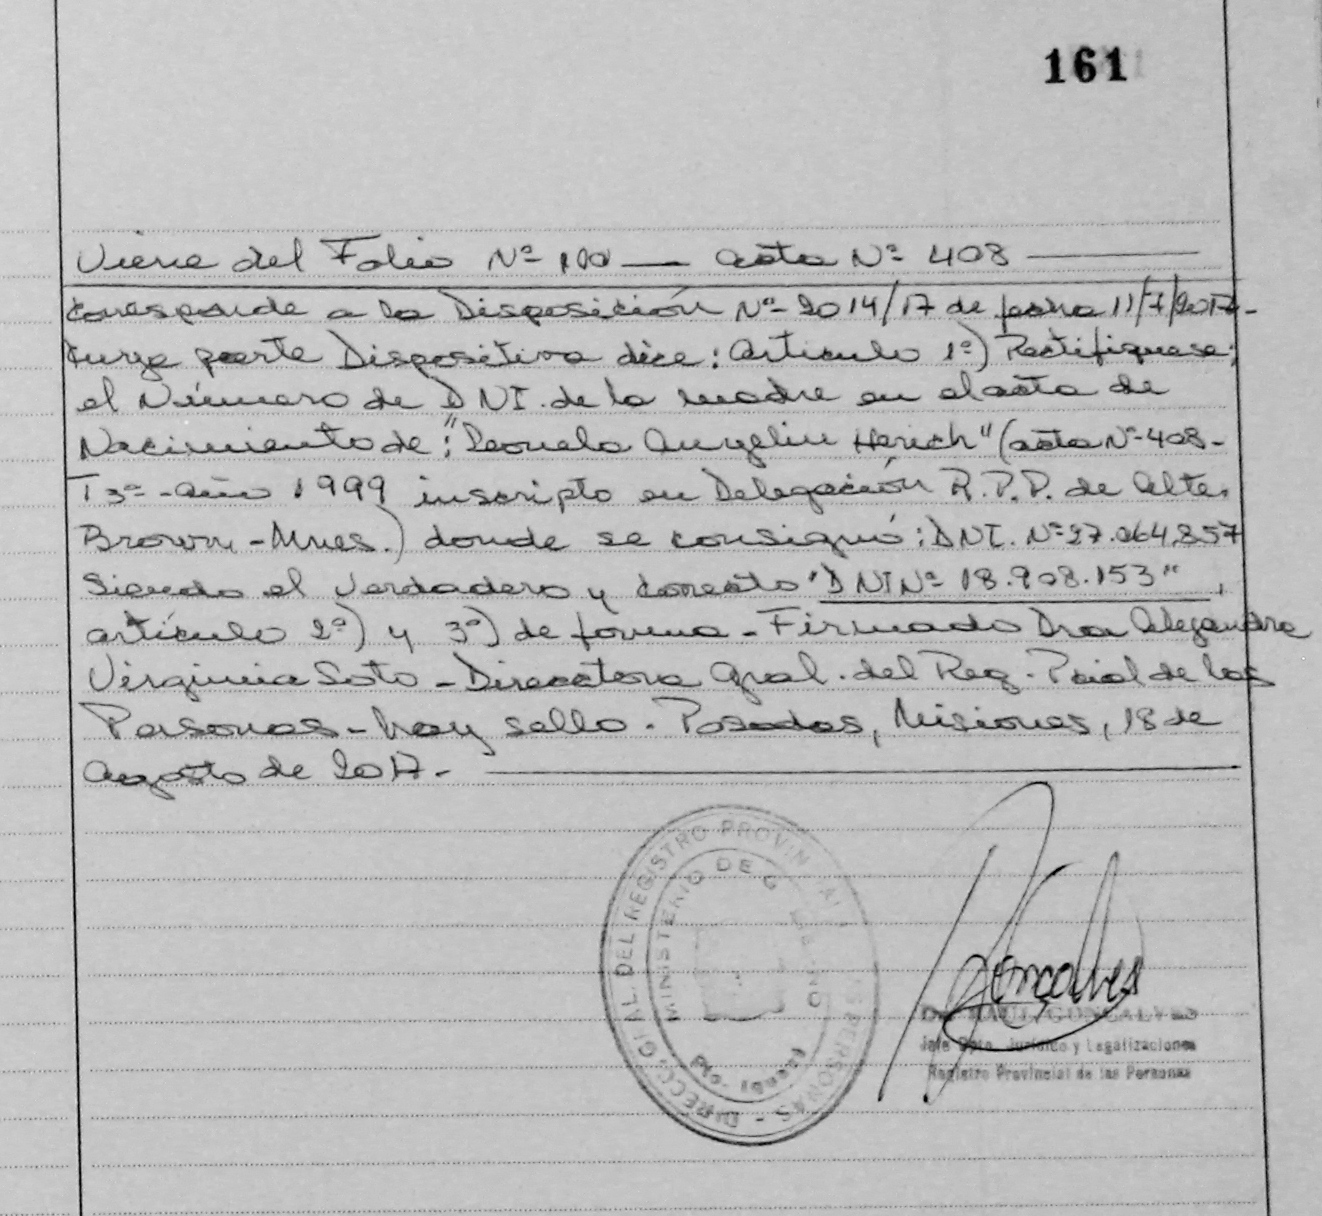 161
Viene del Folio Nº 100 — acta Nº 408
Corresponde a la Disposición Nº 2014/17 de fecha 11/7/2017-
cuya parte Dispositiva dice: Artículo 1º) Rectifíquese;
el Número de DNI. de la madre en el acta de
Nacimiento de: " Herich" (acta Nº 408-
T 3º - año 1999 inscripto en Delegación R.P.P. de Alte.
Brown - Mnes.) donde se consignó: DNI. Nº 27.064.857
siendo el verdadero y correcto "DNI Nº 18.908.153",
artículo 2º) y 3º) de forma - Firmado Dra Alejandra
Virginia Soto - Directora Gral. del Reg. Pcial de las
Personas - hay sello. Posadas, Misiones, 18 de
agosto de 2017.-
DIRECC. GRAL. DEL REGISTRO PROVINCIAL PERSONAS -
MINISTERIO DE GOBIERNO
Gonçalves
Dr. RAUL GONCALVES
Jefe Dpto. Jurídico y Legalizaciones
Registro Provincial de las Personas